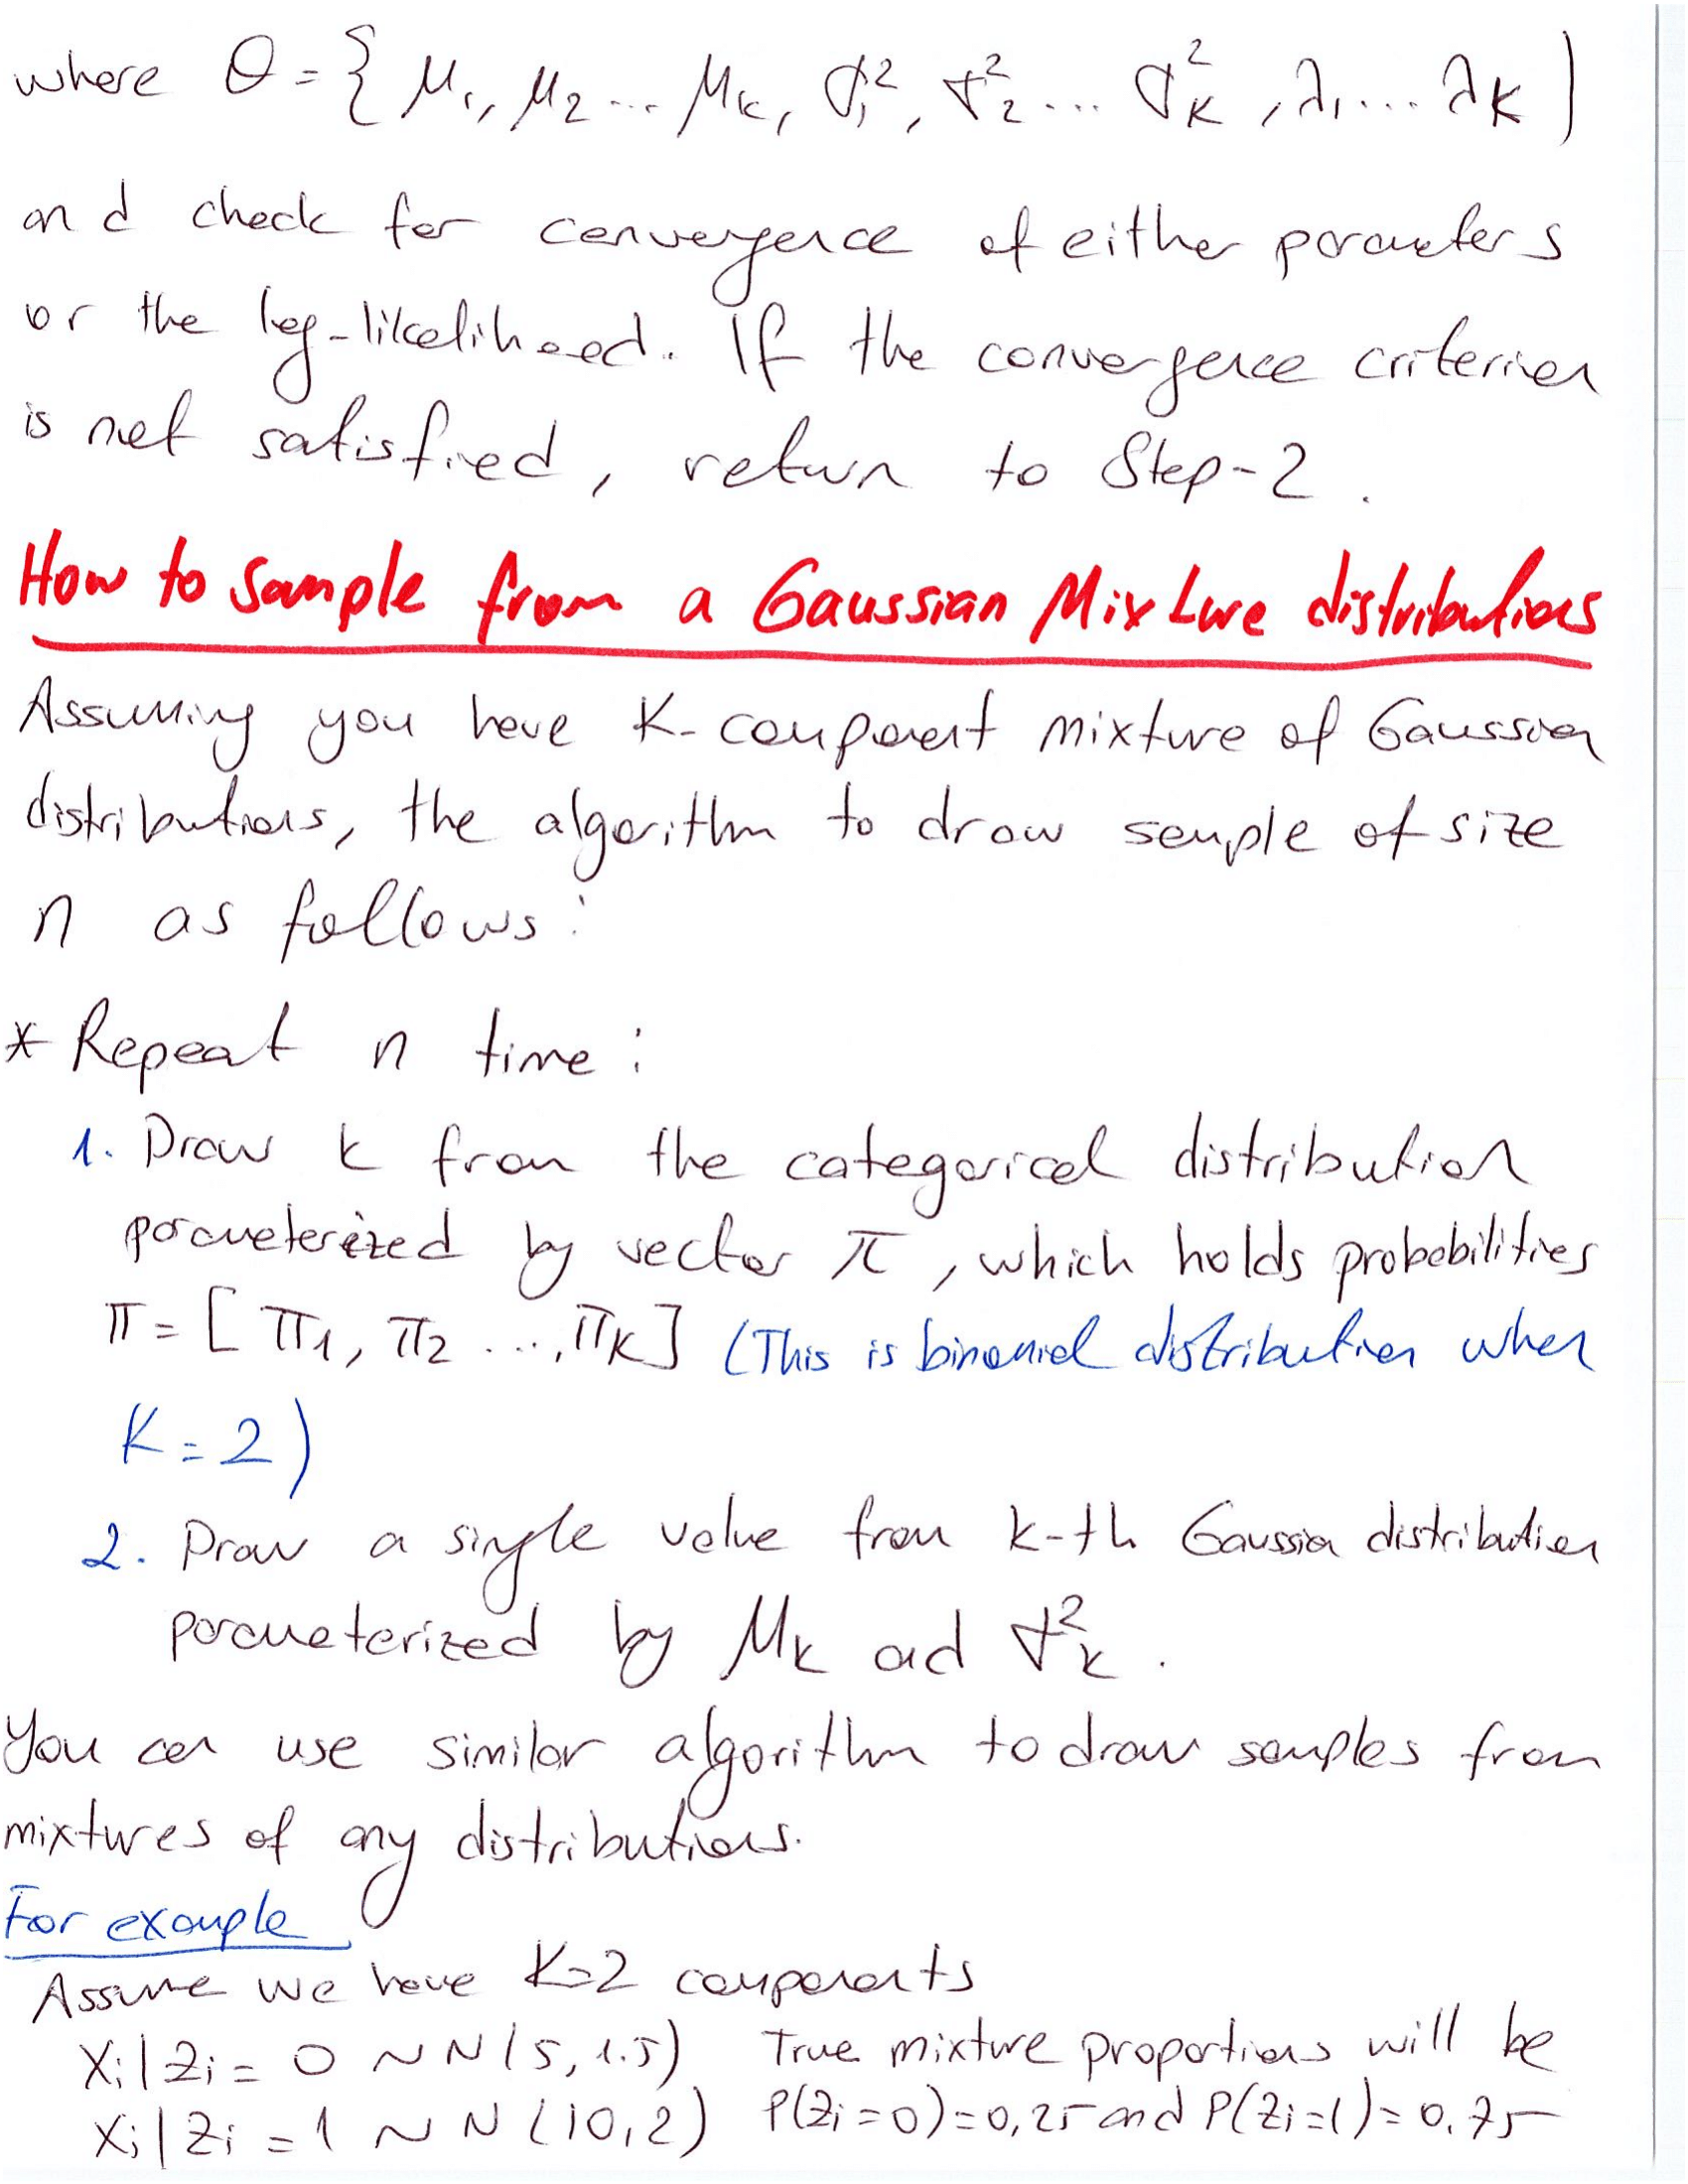 where θ = { μ₁, μ₂ ... μₖ, σ₁², σ₂² ... σ_K², λ₁ ... λ_K )
and check for convergence of either parameters
or the log-likelihood. If the convergence criterion
is not satisfied, return to Step-2.
How to sample from a Gaussian Mixture distributions
Assuming you have K-component mixture of Gaussian
distributions, the algorithm to draw sample of size
n as follows:
* Repeat n time:
1. Draw k from the categorical distribution
parameterized by vector π, which holds probabilities
π = [π₁, π₂ ..., π_K] (This is binomial distribution when
K = 2)
2. Draw a single value from k-th Gaussian distribution
parameterized by μ_k and σ²_k.
You can use similar algorithm to draw samples from
mixtures of any distributions.
For example
Assume we have K=2 components
Xᵢ|Zᵢ = 0 ~ N(5, 1.5) True mixture proportions will be
Xᵢ|Zᵢ = 1 ~ N(10,2) P(Zᵢ=0)=0,25 and P(Zᵢ=1)=0.75